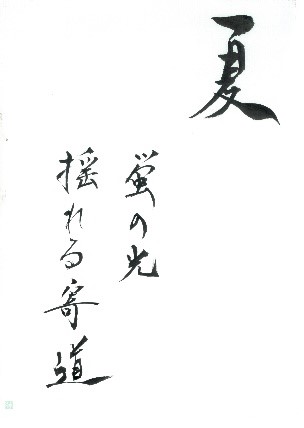 夏
蛍の光
揺れる寄道